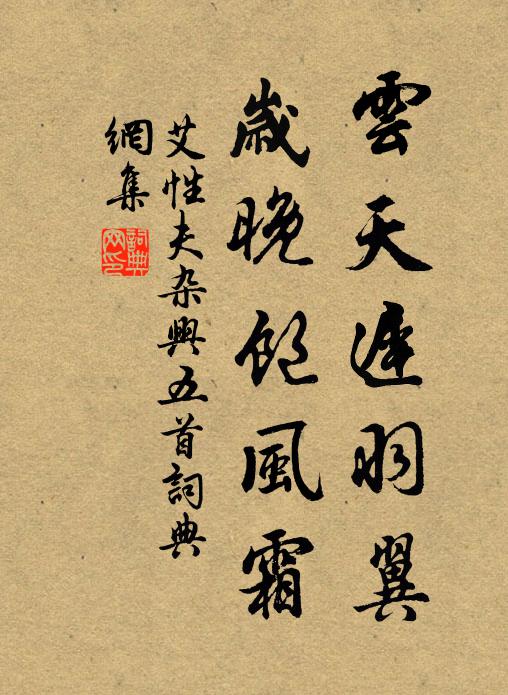 雲天遲羽翼
歲晚飽風霜
艾性夫杂興五首詞典
網集
詞典
网印